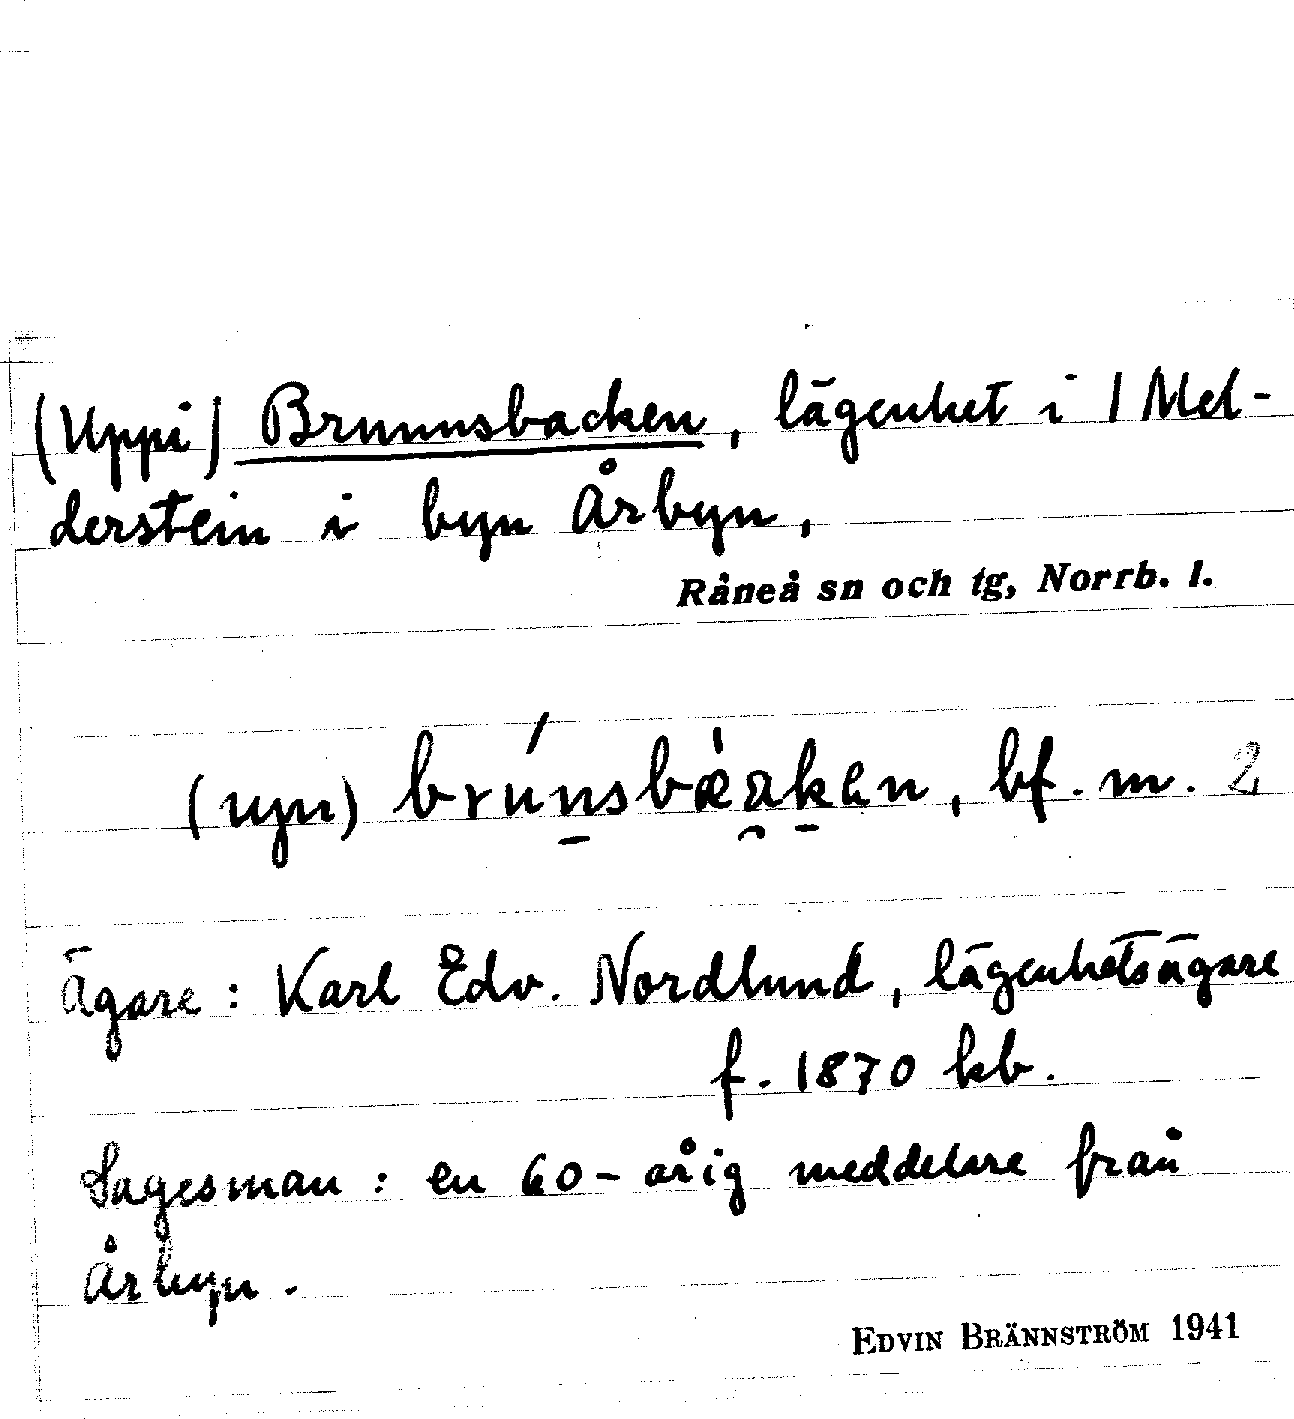 (Uppi) Brunnsbacken, lägenhet i 1 Mel-
derstein i byn Årbyn,
Råneå sn och tg, Norrb. l.
(upn) bf. m. 2
Ägare: Karl Edv. Nordlund, lägenhetsägare
f. 1870 kb.
Sagesman: en 60-årig meddelare från
Årbyn.
EDVIN BRÄNNSTRÖM 1941